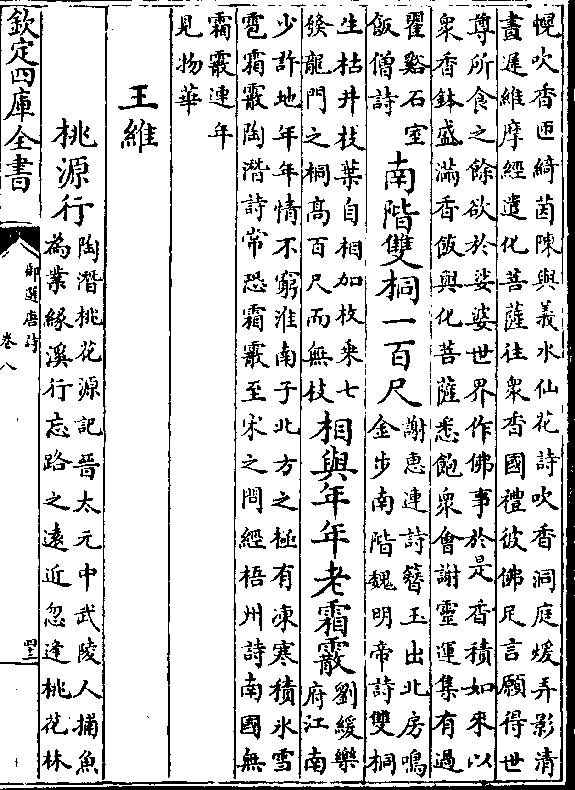 幌吹香匝綺茵陳與義水仙花詩吹香洞庭煖弄影清
晝遲維摩經遣化菩薩往衆香國禮彼佛足言願得世
尊所食之餘欲於娑婆世界作佛事於是香積如來以
衆香鉢盛滿香飯與化菩薩悉飽衆會謝靈運集有過
瞿谿石室
飯僧詩
南階雙桐一百尺
謝惠連詩簪玉出北房鳴
金步南階魏明帝詩雙桐
生枯井枝葉自相加枚乘七
發龍門之桐高百尺而無枝
相與年年老霜霰
劉緩樂
府江南
少許地年年情不窮淮南子北方之極有凍寒積氷雪
雹霜霰陶潛詩常恐霜霰至宋之問經梧州詩南國無
霜霰連年
見物華
王維
桃源行
陶潛桃花源記晉太元中武陵人捕魚
為業緣溪行忘路之遠近忽逢桃花林
欽定四庫全書
御選唐詩
卷八
四二